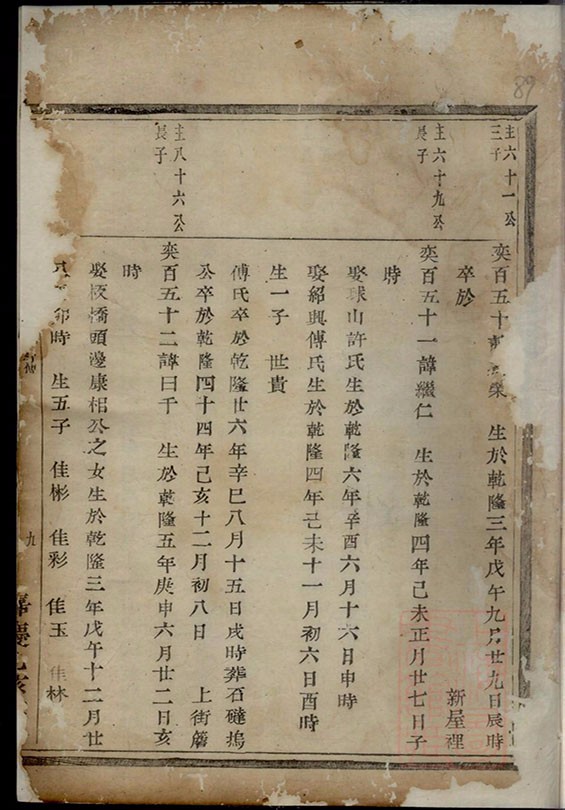 89
主六十一公
三子
奕百五十 榮 生於乾隆三年戊午九月廿九日辰時
卒於 新屋裡
主六十九公
長子
奕百五十一諱繼仁 生於乾隆四年己未正月廿七日子
時
娶球山許氏生於乾隆六年辛酉六月十六日申時
娶紹興傅氏生於乾隆四年己未十一月初六日酉時
生一子 世貴
傅氏卒於乾隆廿六年辛巳八月十五日戌時葬石磋塢
公卒於乾隆四十四年己亥十二月初八日 上街簷
主八十六公
長子
奕百五十二諱曰千 生於乾隆五年庚申六月廿二日亥
時
娶板橋頭邊康相公之女生於乾隆三年戊午十二月廿
卯時 生五子 佳彬 佳彩 佳玉 佳林
九